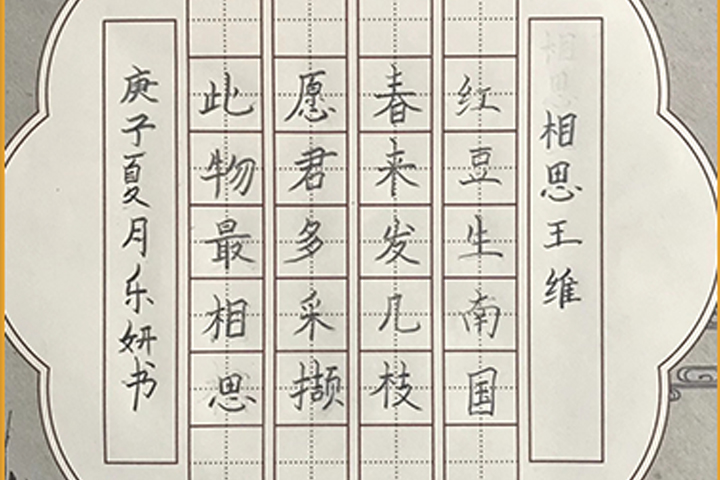 相思王维
红豆生南国
春来发几枝
愿君多采撷
此物最相思
庚子夏月乐妍书